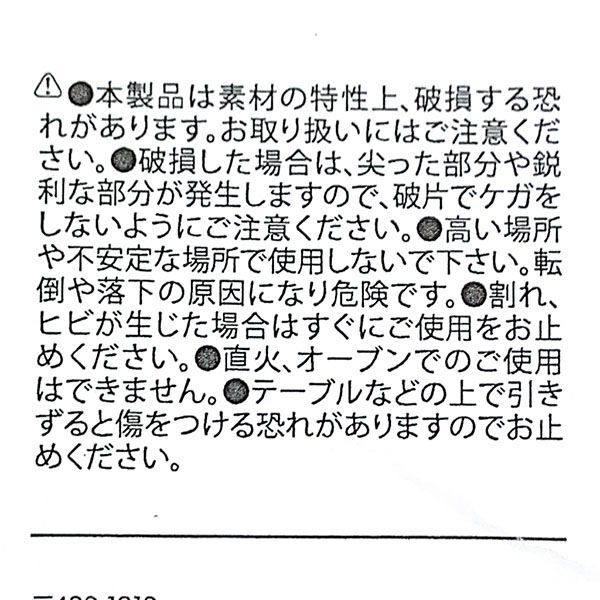 ⚠●本製品は素材の特性上、破損する恐
れがあります。お取り扱いにはご注意くだ
さい。●破損した場合は、尖った部分や鋭
利な部分が発生しますので、破片でケガを
しないようにご注意ください。●高い場所
や不安定な場所で使用しないで下さい。転
倒や落下の原因になり危険です。●割れ、
ヒビが生じた場合はすぐにご使用をお止
めください。●直火、オーブンでのご使用
はできません。●テーブルなどの上で引き
ずると傷をつける恐れがありますのでお止
めください。